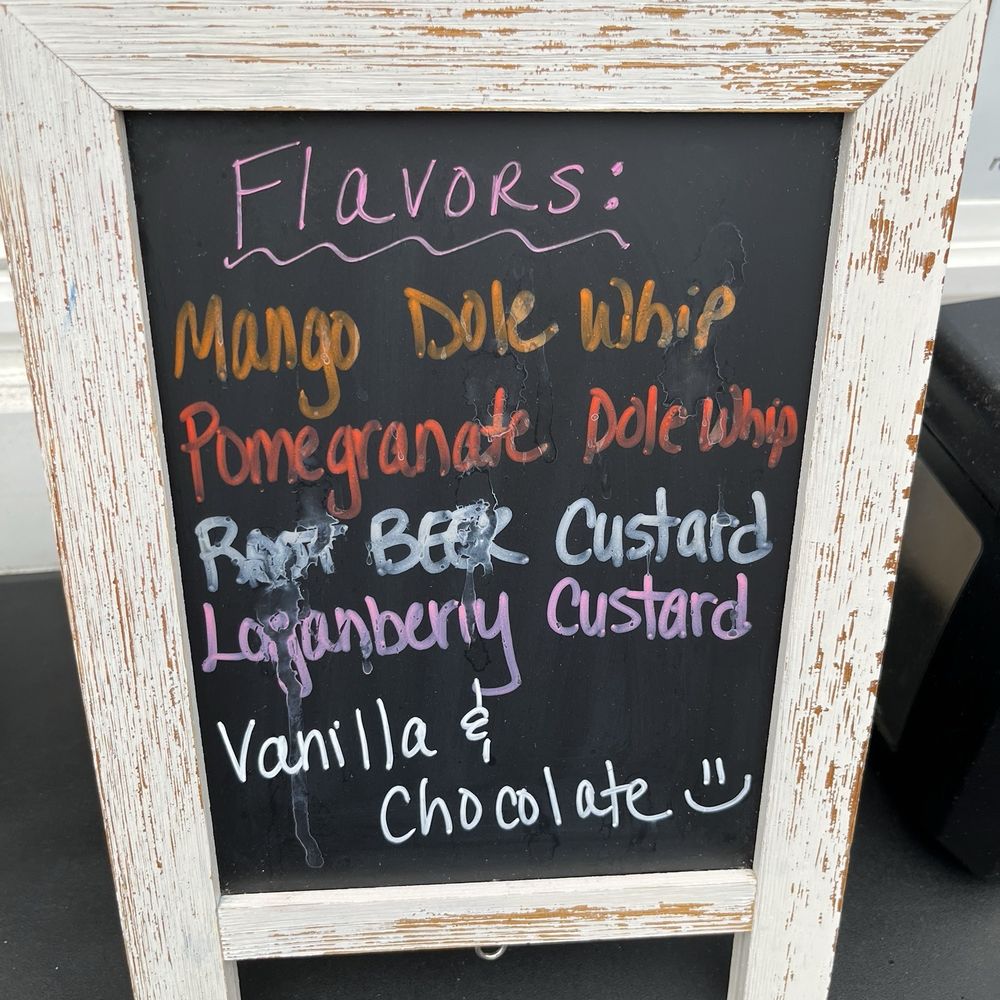 Flavors:
Mango Dole Whip
Pomegranate Dole Whip
Root BEER Custard
Loganberry Custard
Vanilla &
Chocolate